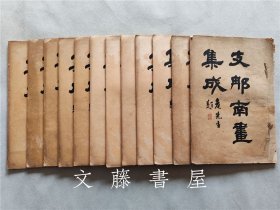 支那南畫
集成
文藤書屋